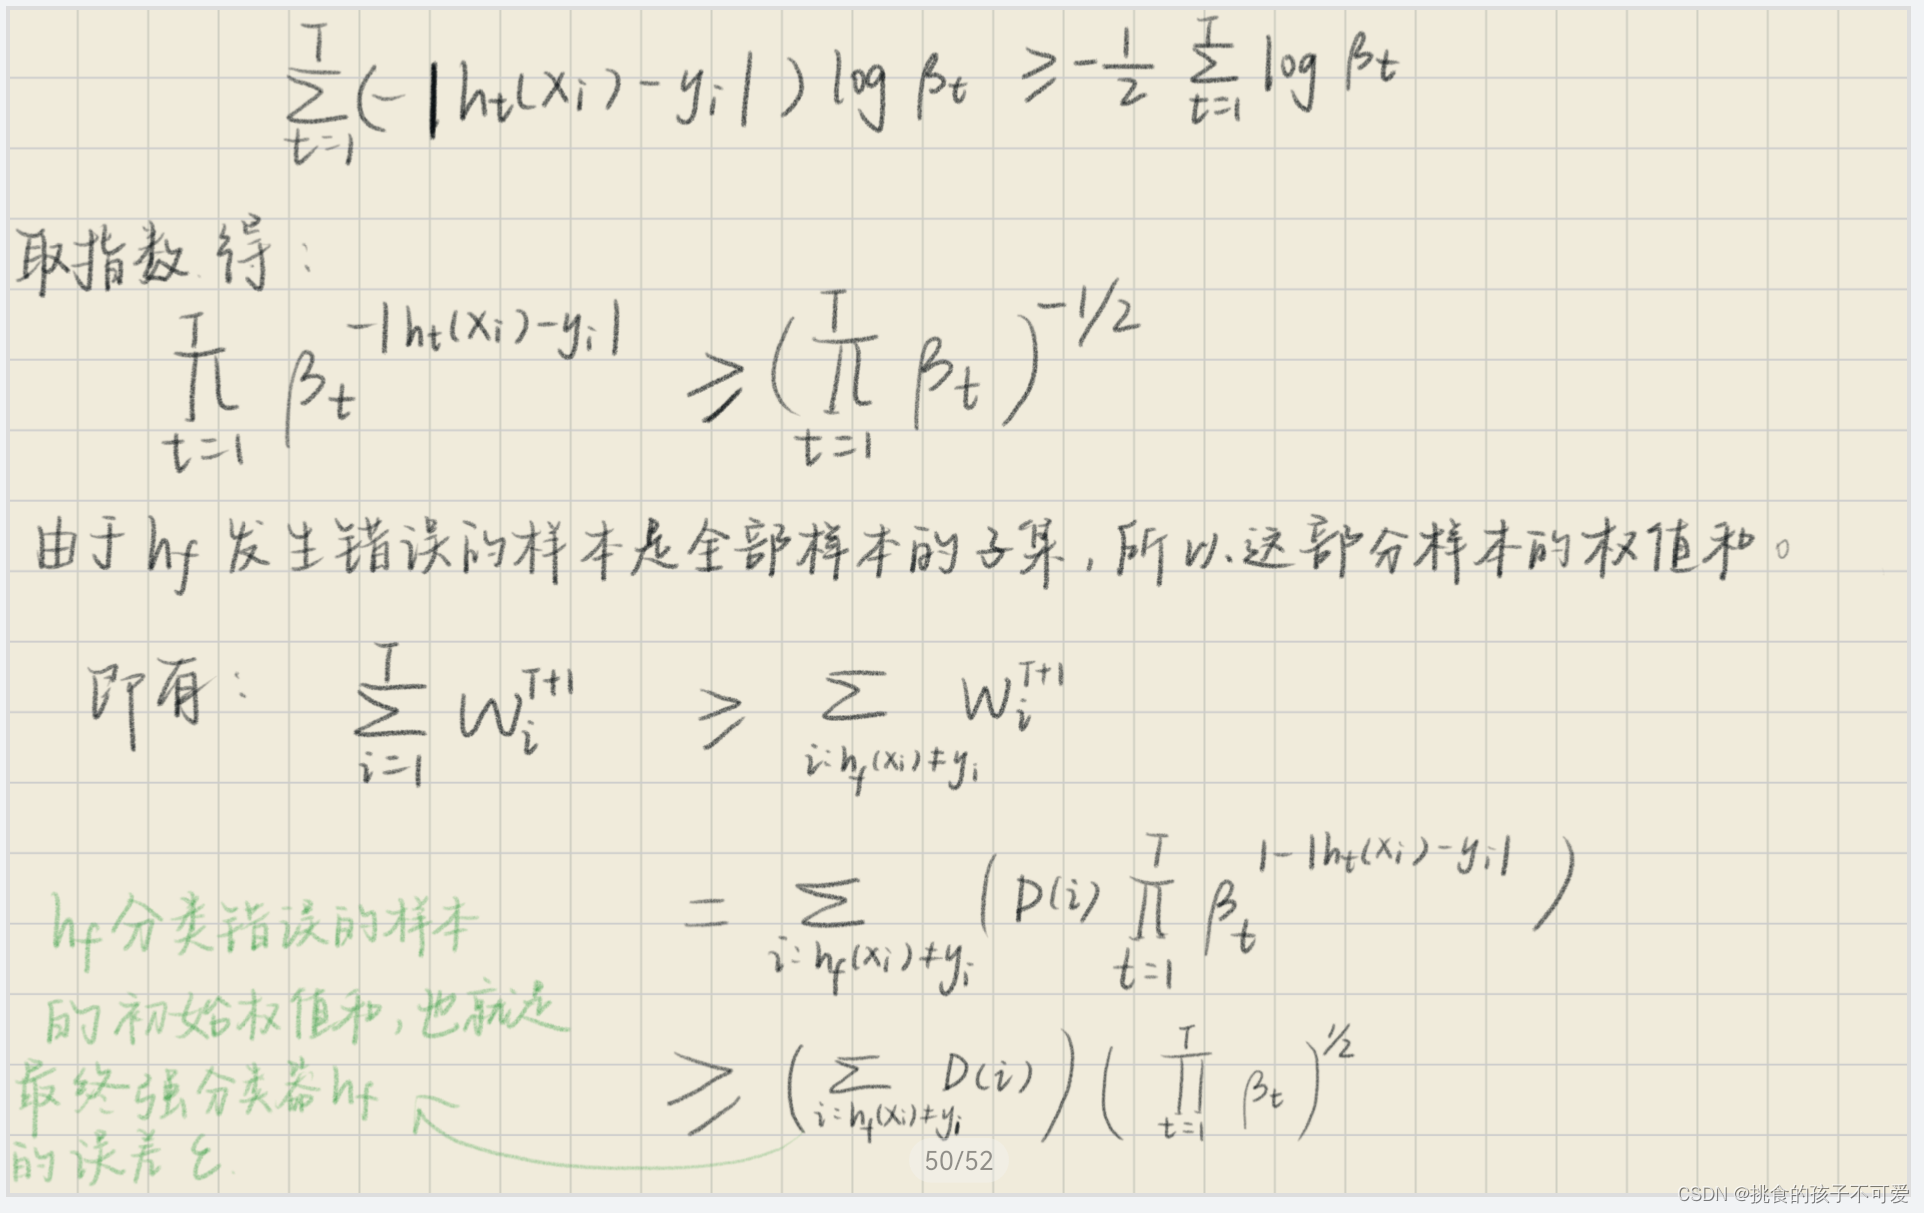 ∑_{t=1}^{T} (-|h_t(x_i) - y_i|) log β_t ≥ -1/2 ∑_{t=1}^{T} log β_t
取指数得：
∏_{t=1}^{T} β_t^{-|h_t(x_i)-y_i|} ≥ (∏_{t=1}^{T} β_t)^{-1/2}
由于 h_f 发生错误的样本是全部样本的子集，所以这部分样本的权值和。
即有： ∑_{i=1}^{T} W_i^{T+1} ≥ ∑_{i:h_f(x_i)≠y_i} W_i^{T+1}
= ∑_{i:h_f(x_i)≠y_i} (D(i) ∏_{t=1}^{T} β_t^{1-|h_t(x_i)-y_i|})
≥ (∑_{i=h_f(x_i)≠y_i} D(i)) (∏_{t=1}^{T} β_t)^{1/2}
h_f 分类错误的样本
的初始权值和，也就是
最终强分类器 h_f
的误差 ε.
50/52
CSDN @挑食的孩子不可爱